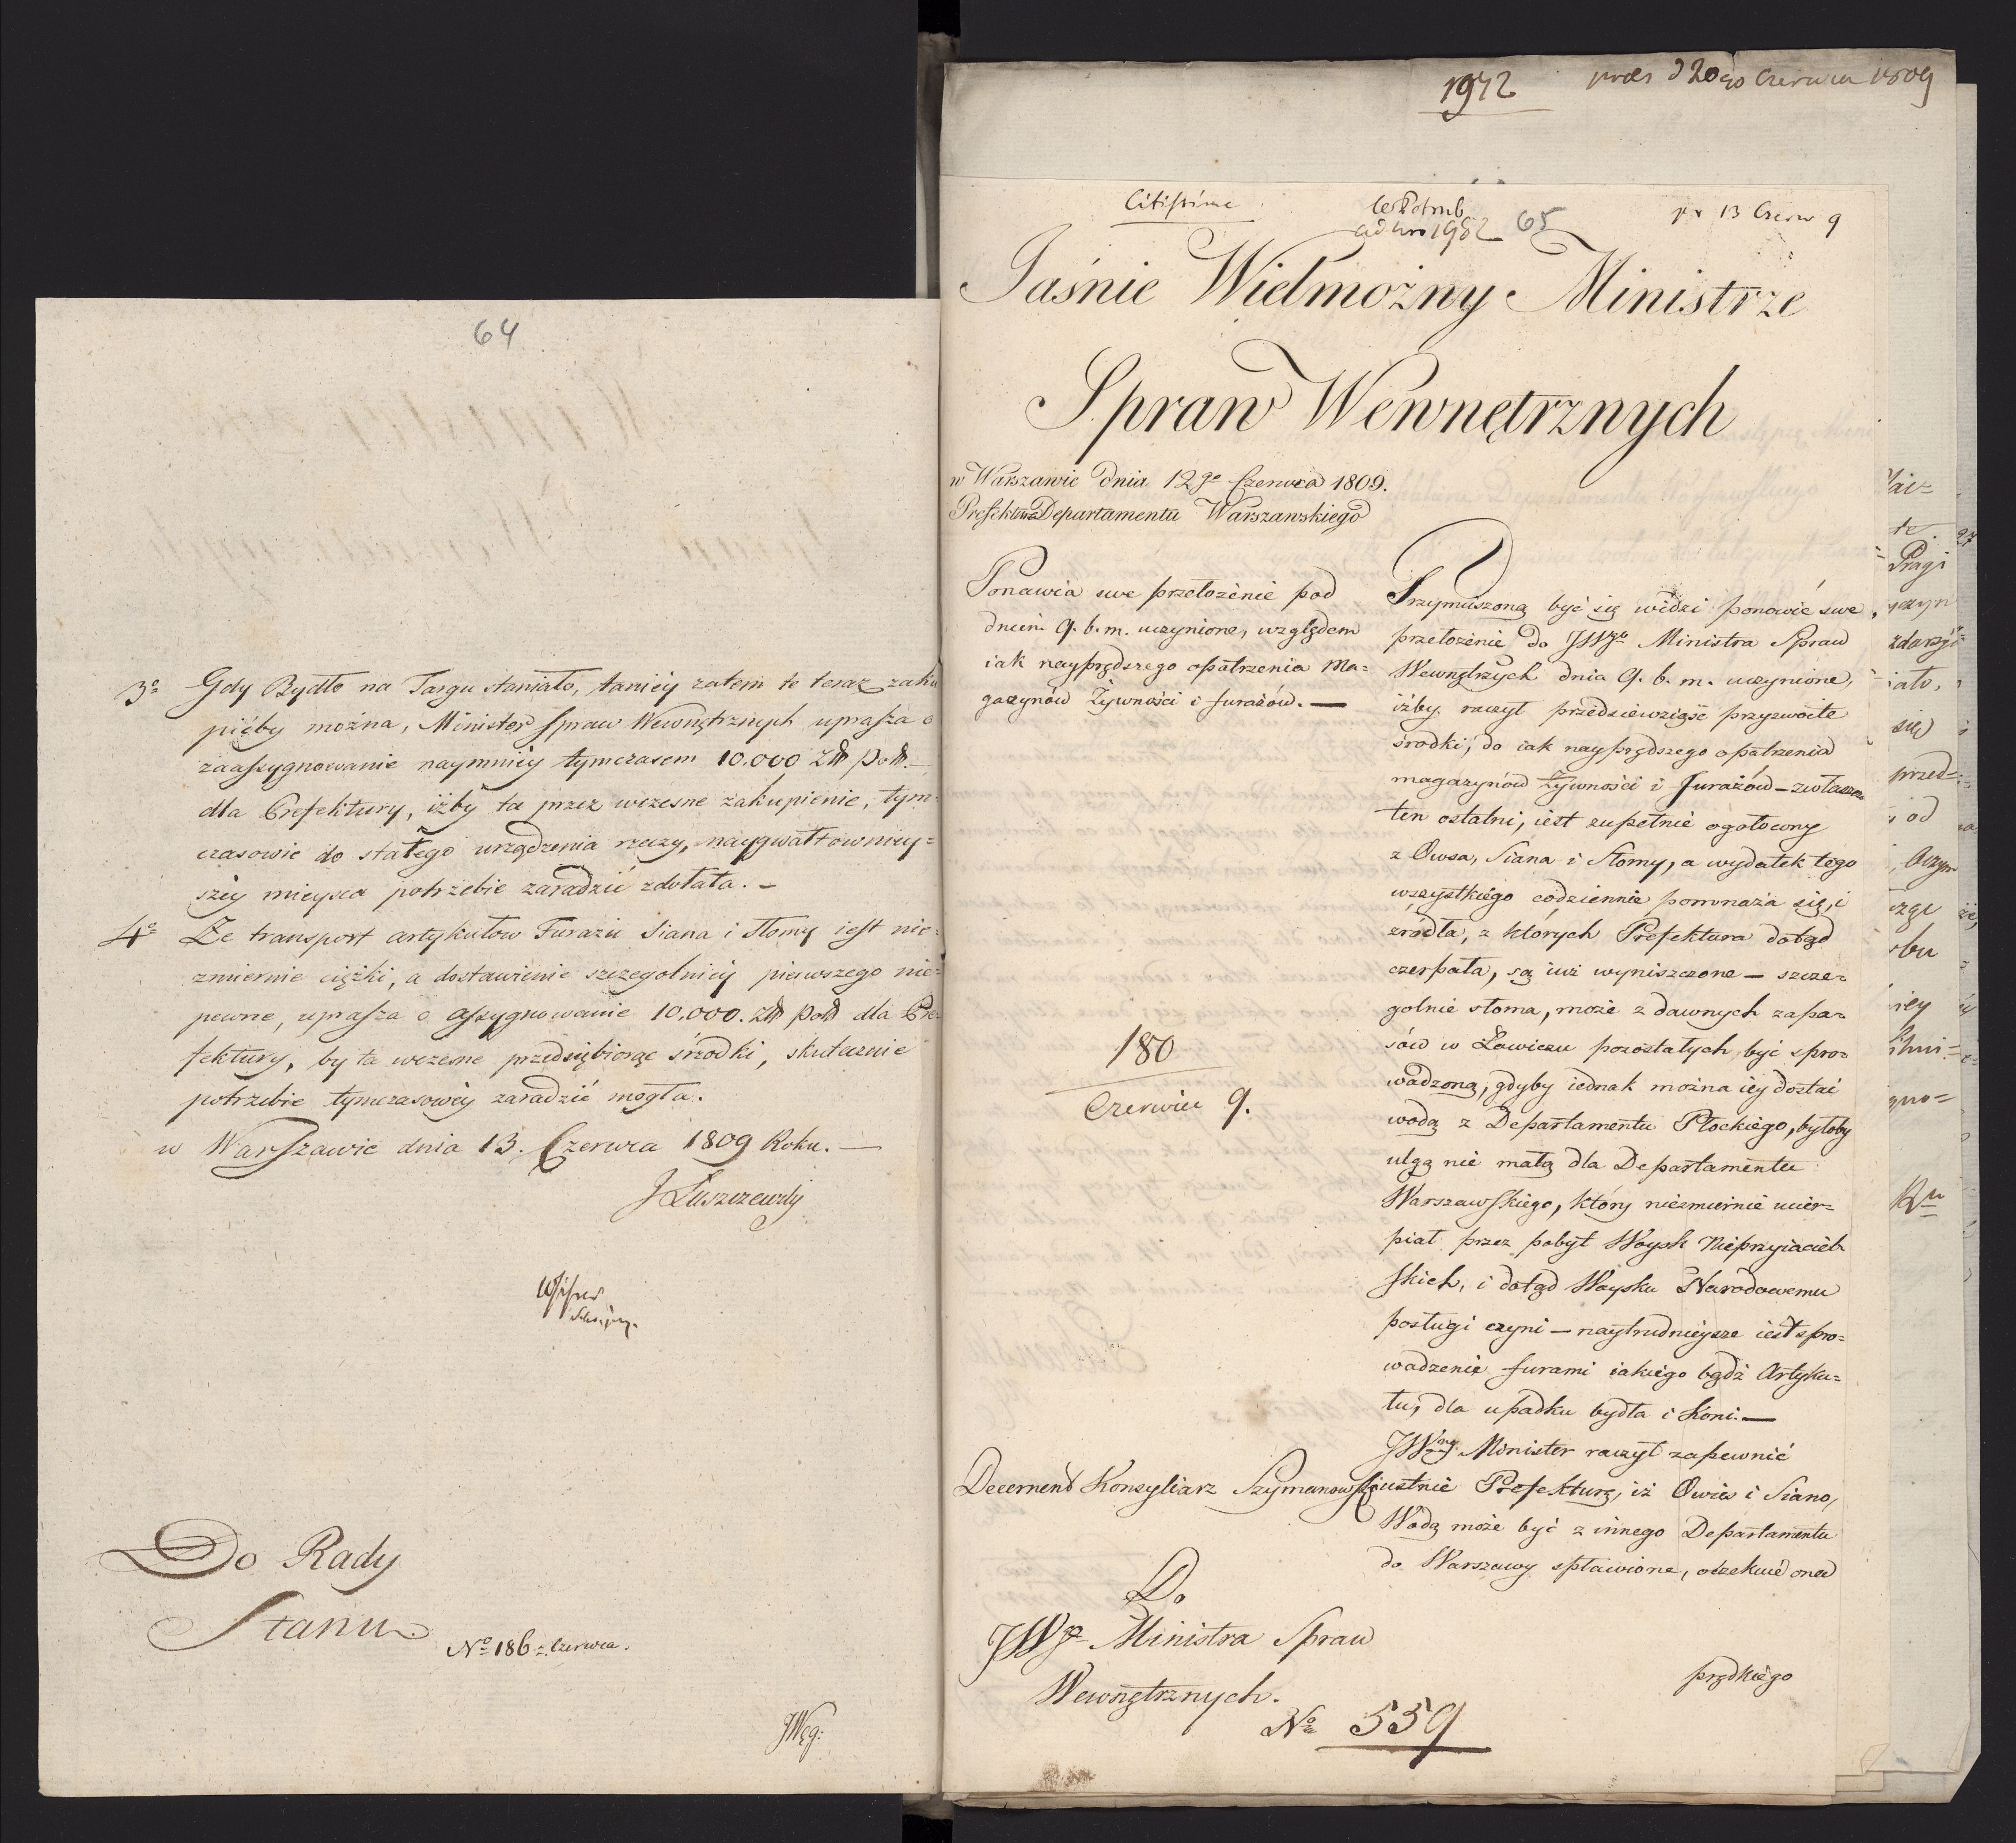 64
3o Gdy Bydło na Targu staniało, taniey zatem te teraz zaku
pićby można, Minister Spraw Wewnętrznych uprasza o
zaassygnowanie naymniey tymczasem 10.000 Złł poll.—
dla Prefektury, iżby ta przez wczesne zakupienie, tym=
czasowie do stałego urządzenia rzeczy, naygwałtowniey=
szey mieysca potrzebie zaradzić zdołała.—
4o Ze transport artykułow Furażu Siana i Słomy iest nie=
zmiernie ciężki, a dostawienie szczegolniey pierwszego nie=
pewne, uprasza o assygnowanie 10.000. złł poll dla Pre=
fektury, by ta wczesne przedsiębiorąc śrzodki, skutecznie
potrzebie tymczasowey zaradzić mogła.
w Warszawie dnia 13. Czerwca 1809 Roku.—
J Łuszczewski
Do Rady
Stanu
No 186 = Czerwca.
JWęg:
1972 præs d 20go Czerwca 1809
Citissime
ad Nro 1982 65 pr 13 Czerw 9
Jaśnie Wielmożny Ministrze
Spraw Wewnętrznych
w Warszawie dnia 12go Czerwca 1809.
Prefektura Departamentu Warszawskiego
Ponawia swe przełożenie pod
dniem 9. b. m. uczynione, względem
iak nayprędszego opatrzenia Ma=
gazynów Żywności i furażów.—
180
Czerwiec 9.
Decernent Konsyliarz Szymanowski
Do
JWgo Ministra Spraw
Wewnętrznych.
No 559
Przymuszoną być się widzi ponowić swe
przełożenie do JWgo Ministra Spraw
Wewnętrzych dnia 9. b. m. uczynione,
iżby raczył przedsiewziąść przyzwoite
środki, do iak nayprędszego opatrzenia
magazynów Żywności i Furażów — zwłaszcza
ten ostatni, iest zupełnie ogołocony
z Owsa, Siana i Słomy, a wydatek tego
wszystkiego codziennie pomnaża się, i
zródła, z których Prefektura dotąd
czerpała, są iuż wyniszczone — szcze=
golnie słoma, może z dawnych zapa=
sów w Łowiczu pozostałych być spro=
wadzoną, gdyby iednak można iey dostać
wodą z Departamentu Płockiego, byłoby
ulgą nie małą dla Departamentu
Warszawskiego, który niezmiernie ucier=
piał przez pobyt Woysk Nieprzyiaciel=
skich, i dotąd Woysku Narodowemu
posługi czyni — naytrudnieysze iest spro=
wadzenie furami iakiego bądź Artyku=
łu, dla upadku bydła i Koni.—
JWny Minister raczył zapewnić
ustnie Prefekturę, iż Owies i Siano,
Wodą może być z innego Departamentu
do Warszawy spławione, oczekuie ona
prędkiego
Pragi
się
przed=
od